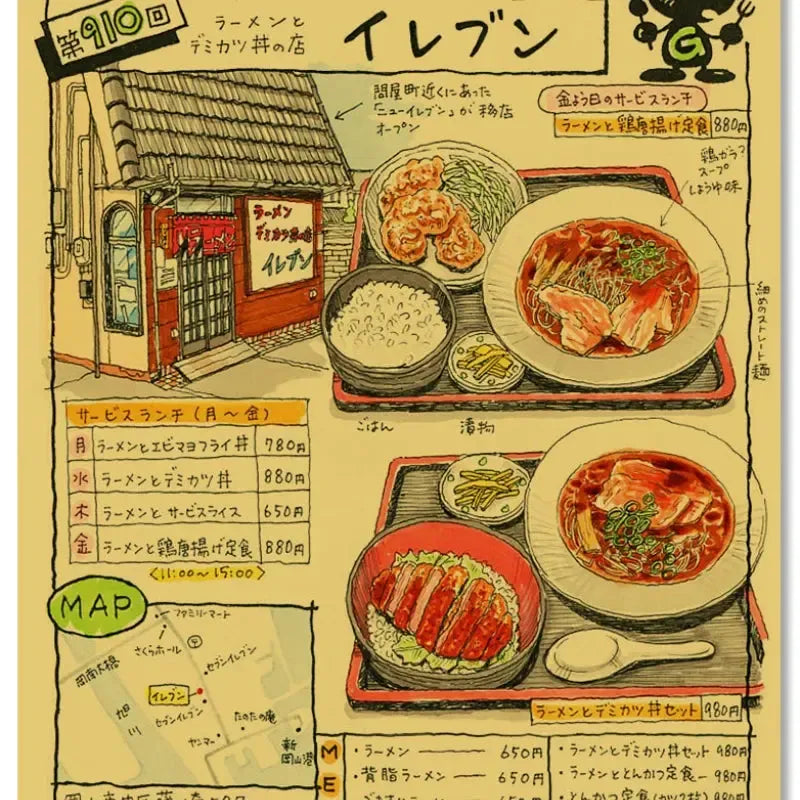 第910回
ラーメンと
デミカツ丼の店
イレブン
G
問屋町近くにあった
「ニューイレブン」が移店
オープン
金よう日のサービスランチ
ラーメンと鶏唐揚げ定食 880円
鶏ガラ?
スープ
しょうゆ味
ラーメン
ラーメン
デミカツ丼の店
イレブン
細めのストレート麺
ごはん
漬物
サービスランチ(月〜金)
月 ラーメンとエビマヨフライ丼 780円
水 ラーメンとデミカツ丼 880円
木 ラーメンとサービスライス 650円
金 ラーメンと鶏唐揚げ定食 880円
〈11:00〜15:00〉
MAP
ファミリーマート
さくらホール
岡南大橋
セブンイレブン
イレブン
旭川
セブンイレブン
たのたの庵
ヤンマー
新岡山港
ラーメンとデミカツ丼セット 980円
M
E
・ラーメン 650円
・背脂ラーメン 650円
・ラーメンとデミカツ丼セット 980円
・ラーメンととんかつ定食 980円